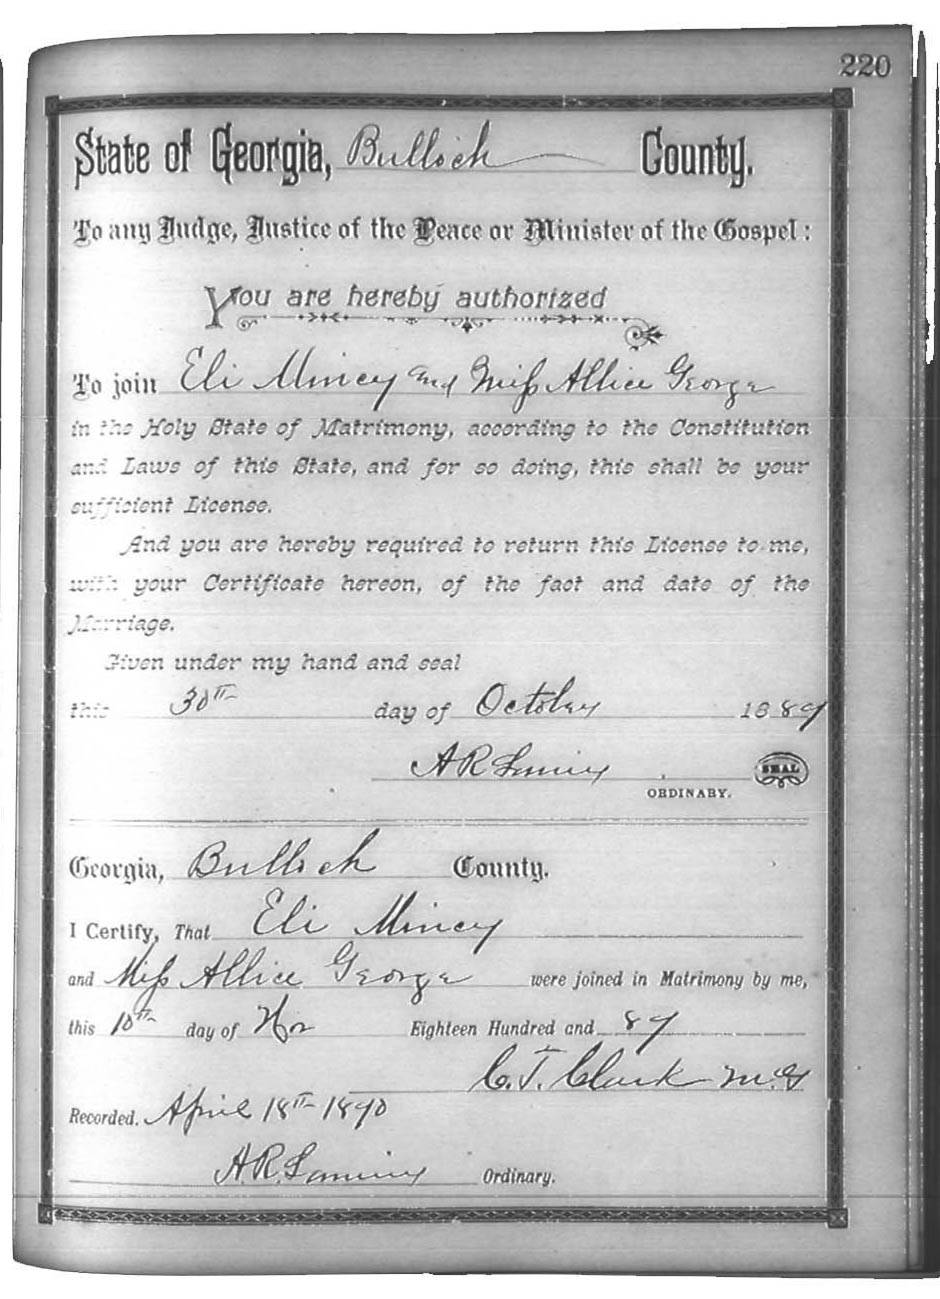 220
State of Georgia, Bulloch County.
To any Judge, Justice of the Peace or Minister of the Gospel:
You are hereby authorized
To join Eli Mincey and Miss Allice George
in the Holy State of Matrimony, according to the Constitution
and Laws of this State, and for so doing, this shall be your
sufficient License.
And you are hereby required to return this License to me,
with your Certificate hereon, of the fact and date of the
Marriage.
Given under my hand and seal
this 30th day of October 1889
A R Lanier SEAL
ORDINARY.
Georgia, Bulloch County.
I Certify, That Eli Mincey
and Miss Allice George were joined in Matrimony by me,
this 10th day of Nov Eighteen Hundred and 89
C. T. Clark M.G
Recorded. April 18th 1890
A. R. Lanier Ordinary.